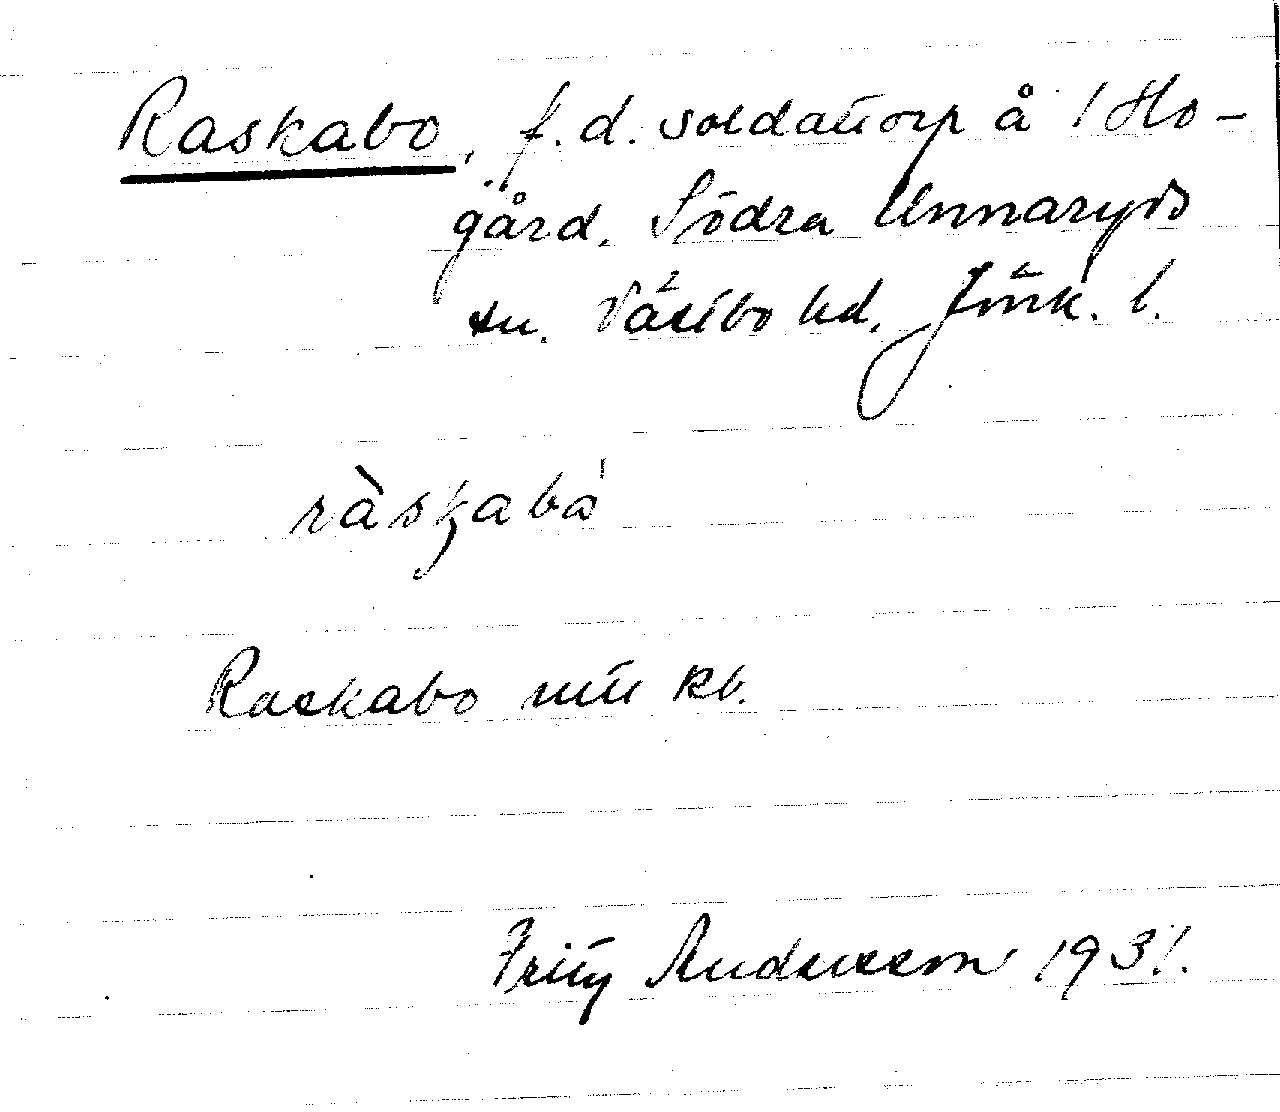 Raskabo, f.d. soldattorp å 1 Ho-
gård, Södra Unnaryds
sn. Västbo hd, Jönk. l.
ràskabo
Raskabo mtl kb.
Fritz Andersson 1931.